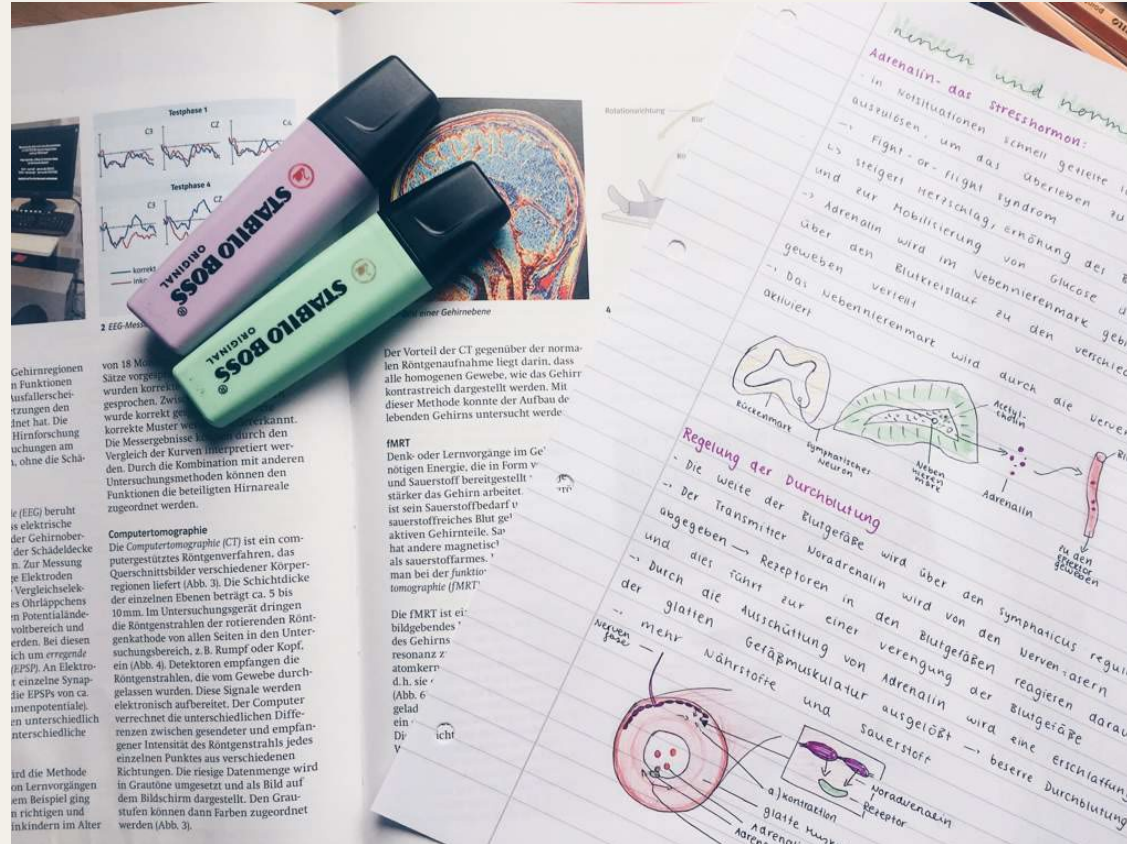 Testphase 1
C3
CZ
C4
Testphase 4
C3
CZ
korrekt
2 EEG-Mess
STABILO BOSS
ORIGINAL
STABILO BOSS
ORIGINAL
einer Gehirnebene
Rotationsrichtung
4
Gehirnregionen
n Funktionen
usfallerschei-
tzungen den
dnet hat. Die
Hirnforschung
uchungen am
, ohne die Schä-
ie (EEG) beruht
ss elektrische
der Gehirnober-
der Schädeldecke
n. Zur Messung
ge Elektroden
Vergleichselek-
es Ohrläppchens
n Potentialände-
voltbereich und
erden. Bei diesen
ich um erregende
(EPSP). An Elektro-
t einzelne Synap-
die EPSPs von ca.
menpotentiale).
en unterschiedlich
nterschiedliche
ird die Methode
on Lernvorgängen
em Beispiel ging
n richtigen und
inkindern im Alter
von 18 Mo
Sätze vorgesp
wurden korrekt
gesprochen. Zwis
wurde korrekt ge
korrekte Muster we erkannt.
Die Messergebnisse k durch den
Vergleich der Kurven interpretiert wer-
den. Durch die Kombination mit anderen
Untersuchungsmethoden können den
Funktionen die beteiligten Hirnareale
zugeordnet werden.
Computertomographie
Die Computertomographie (CT) ist ein com-
putergestütztes Röntgenverfahren, das
Querschnittsbilder verschiedener Körper-
regionen liefert (Abb. 3). Die Schichtdicke
der einzelnen Ebenen beträgt ca. 5 bis
10 mm. Im Untersuchungsgerät dringen
die Röntgenstrahlen der rotierenden Rönt-
genkathode von allen Seiten in den Unter-
suchungsbereich, z. B. Rumpf oder Kopf,
ein (Abb. 4). Detektoren empfangen die
Röntgenstrahlen, die vom Gewebe durch-
gelassen wurden. Diese Signale werden
elektronisch aufbereitet. Der Computer
verrechnet die unterschiedlichen Diffe-
renzen zwischen gesendeter und empfan-
gener Intensität des Röntgenstrahls jedes
einzelnen Punktes aus verschiedenen
Richtungen. Die riesige Datenmenge wird
in Grautöne umgesetzt und als Bild auf
dem Bildschirm dargestellt. Den Grau-
stufen können dann Farben zugeordnet
werden (Abb. 3).
Der Vorteil der CT gegenüber der norma-
len Röntgenaufnahme liegt darin, dass
alle homogenen Gewebe, wie das Gehirn
kontrastreich dargestellt werden. Mit
dieser Methode konnte der Aufbau de
lebenden Gehirns untersucht werde
fMRT
Denk- oder Lernvorgänge im Ge
nötigen Energie, die in Form v
und Sauerstoff bereitgestellt
stärker das Gehirn arbeitet.
ist sein Sauerstoffbedarf u
sauerstoffreiches Blut gel
aktiven Gehirnteile. Sau
hat andere magnetisch
als sauerstoffarmes.
man bei der funktion
tomographie (fMRT)
Die fMRT ist ei
bildgebendes
des Gehirns
resonanz z
atomkern
d.h. sie
(Abb. 6
gelad
ein
Di icht
nerven und horm
Adrenalin- das Stresshormon:
- in Notsituationen schnell gezielte
auszulösen, um das Überleben zu
-> Fight-or-flight syndrom
↳ steigert Herzschlag, erhöhung des B
und zur Mobilisierung von Glucose
-> Adrenalin wird im Nebennierenmark gebi
über den Blutkreislauf zu den verschied
geweben verteilt
-> Das Nebennierenmark wird durch die Nerven
aktiviert
Rückenmark
sympathisches
Neuron
Neben
nieren
mark
Acetyl-
cholin
Adrenalin
zu den
effektor
geweben
Regelung der Durchblutung
- Die weite der Blutgefäße wird über den sympathicus regul
-> Der Transmitter Noradrenalin wird von den Nervenfasern
abgegeben -> Rezeptoren in den Blutgefäßen reagieren darau
und dies führt zur einer verengung der Blutgefäße
-> Durch die Ausschüttung von Adrenalin wird eine erschlaffung
der glatten Gefäßmuskulatur ausgelöst -> bessere Durchblutung
-> mehr Nährstoffe und sauerstoff
Nerven
fase
Noradrenalin
Rezeptor
a) kontraktion
glatte Musk
Adrenali